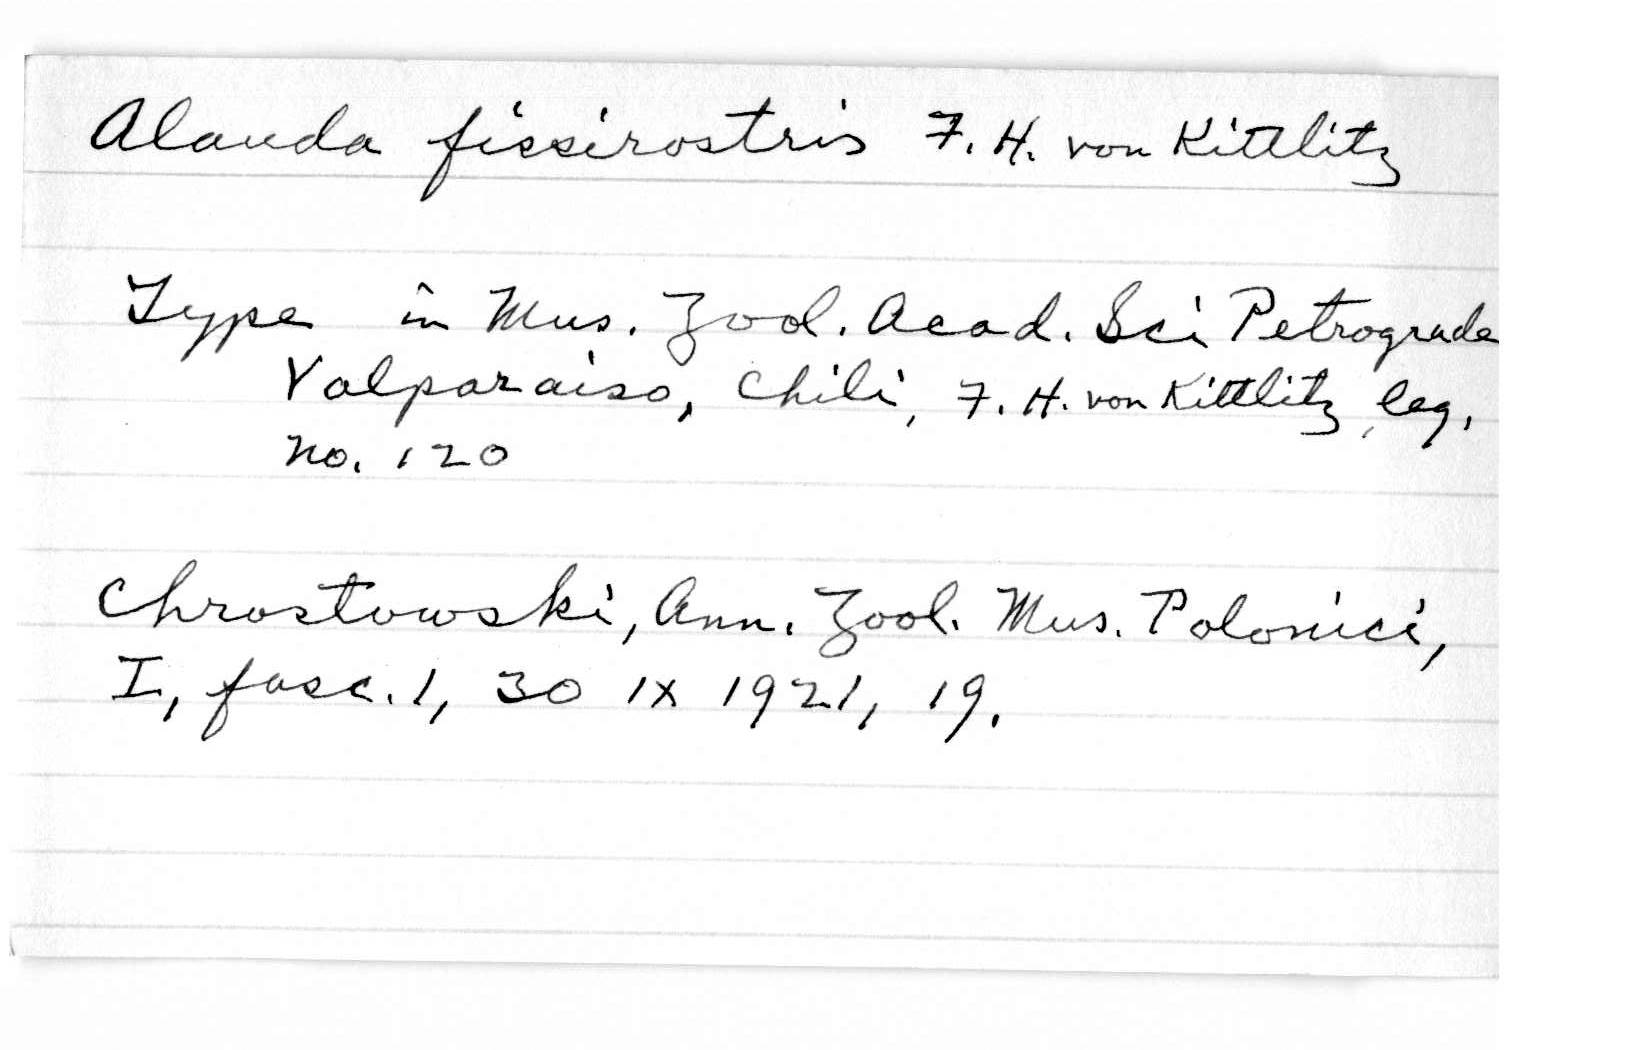 Alauda fissirostris F. H. von Kittlitz
Type in Mus. Zool. Acad. Sci Petrograde
Valparaiso, Chili, F. H. von Kittlitz, leg.
no. 120
Chrostowski, Ann. Zool. Mus. Polonici,
I, fasc. 1, 30 IX 1921, 19.